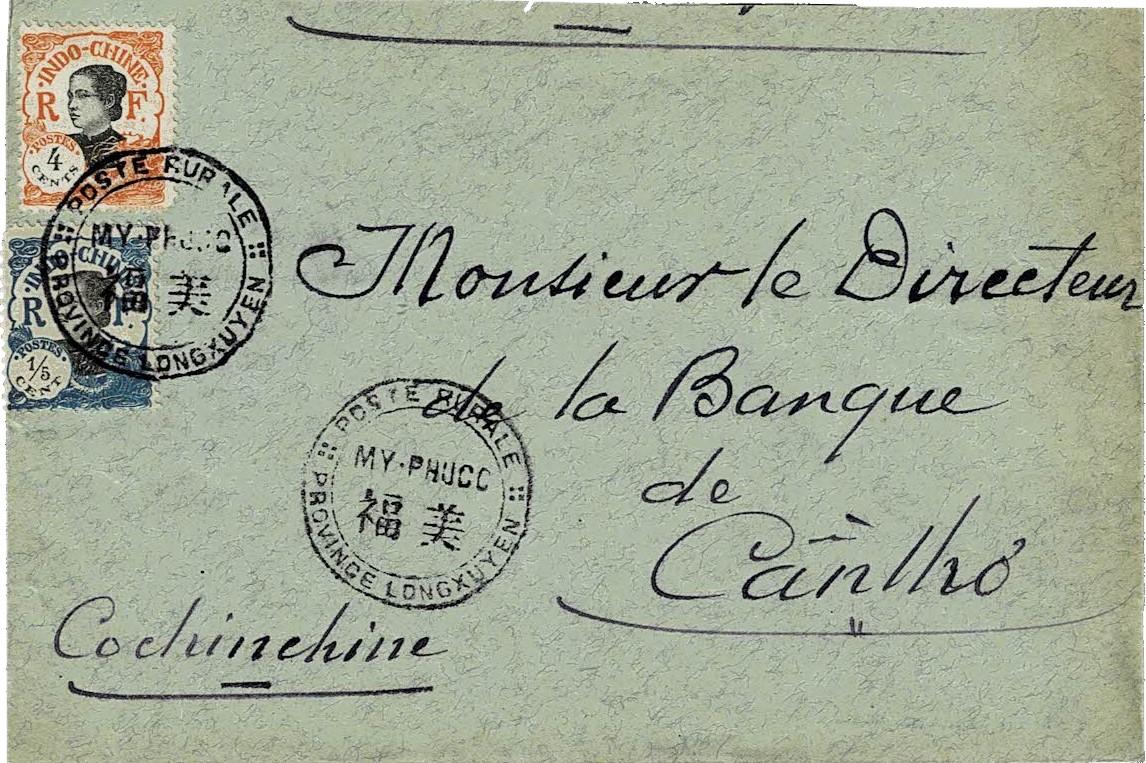 INDO-CHINE
R F.
POSTES
4
CENTS
POSTE RURALE
MY-PHUOC
福 美
PROVINCE LONGXUYEN
INDO-CHINE
R F.
POSTES
1/5
CENT
Monsieur le Directeur
de la Banque
de
Cânthơ
POSTE RURALE
MY-PHUOC
福 美
PROVINCE LONGXUYEN
Cochinchine